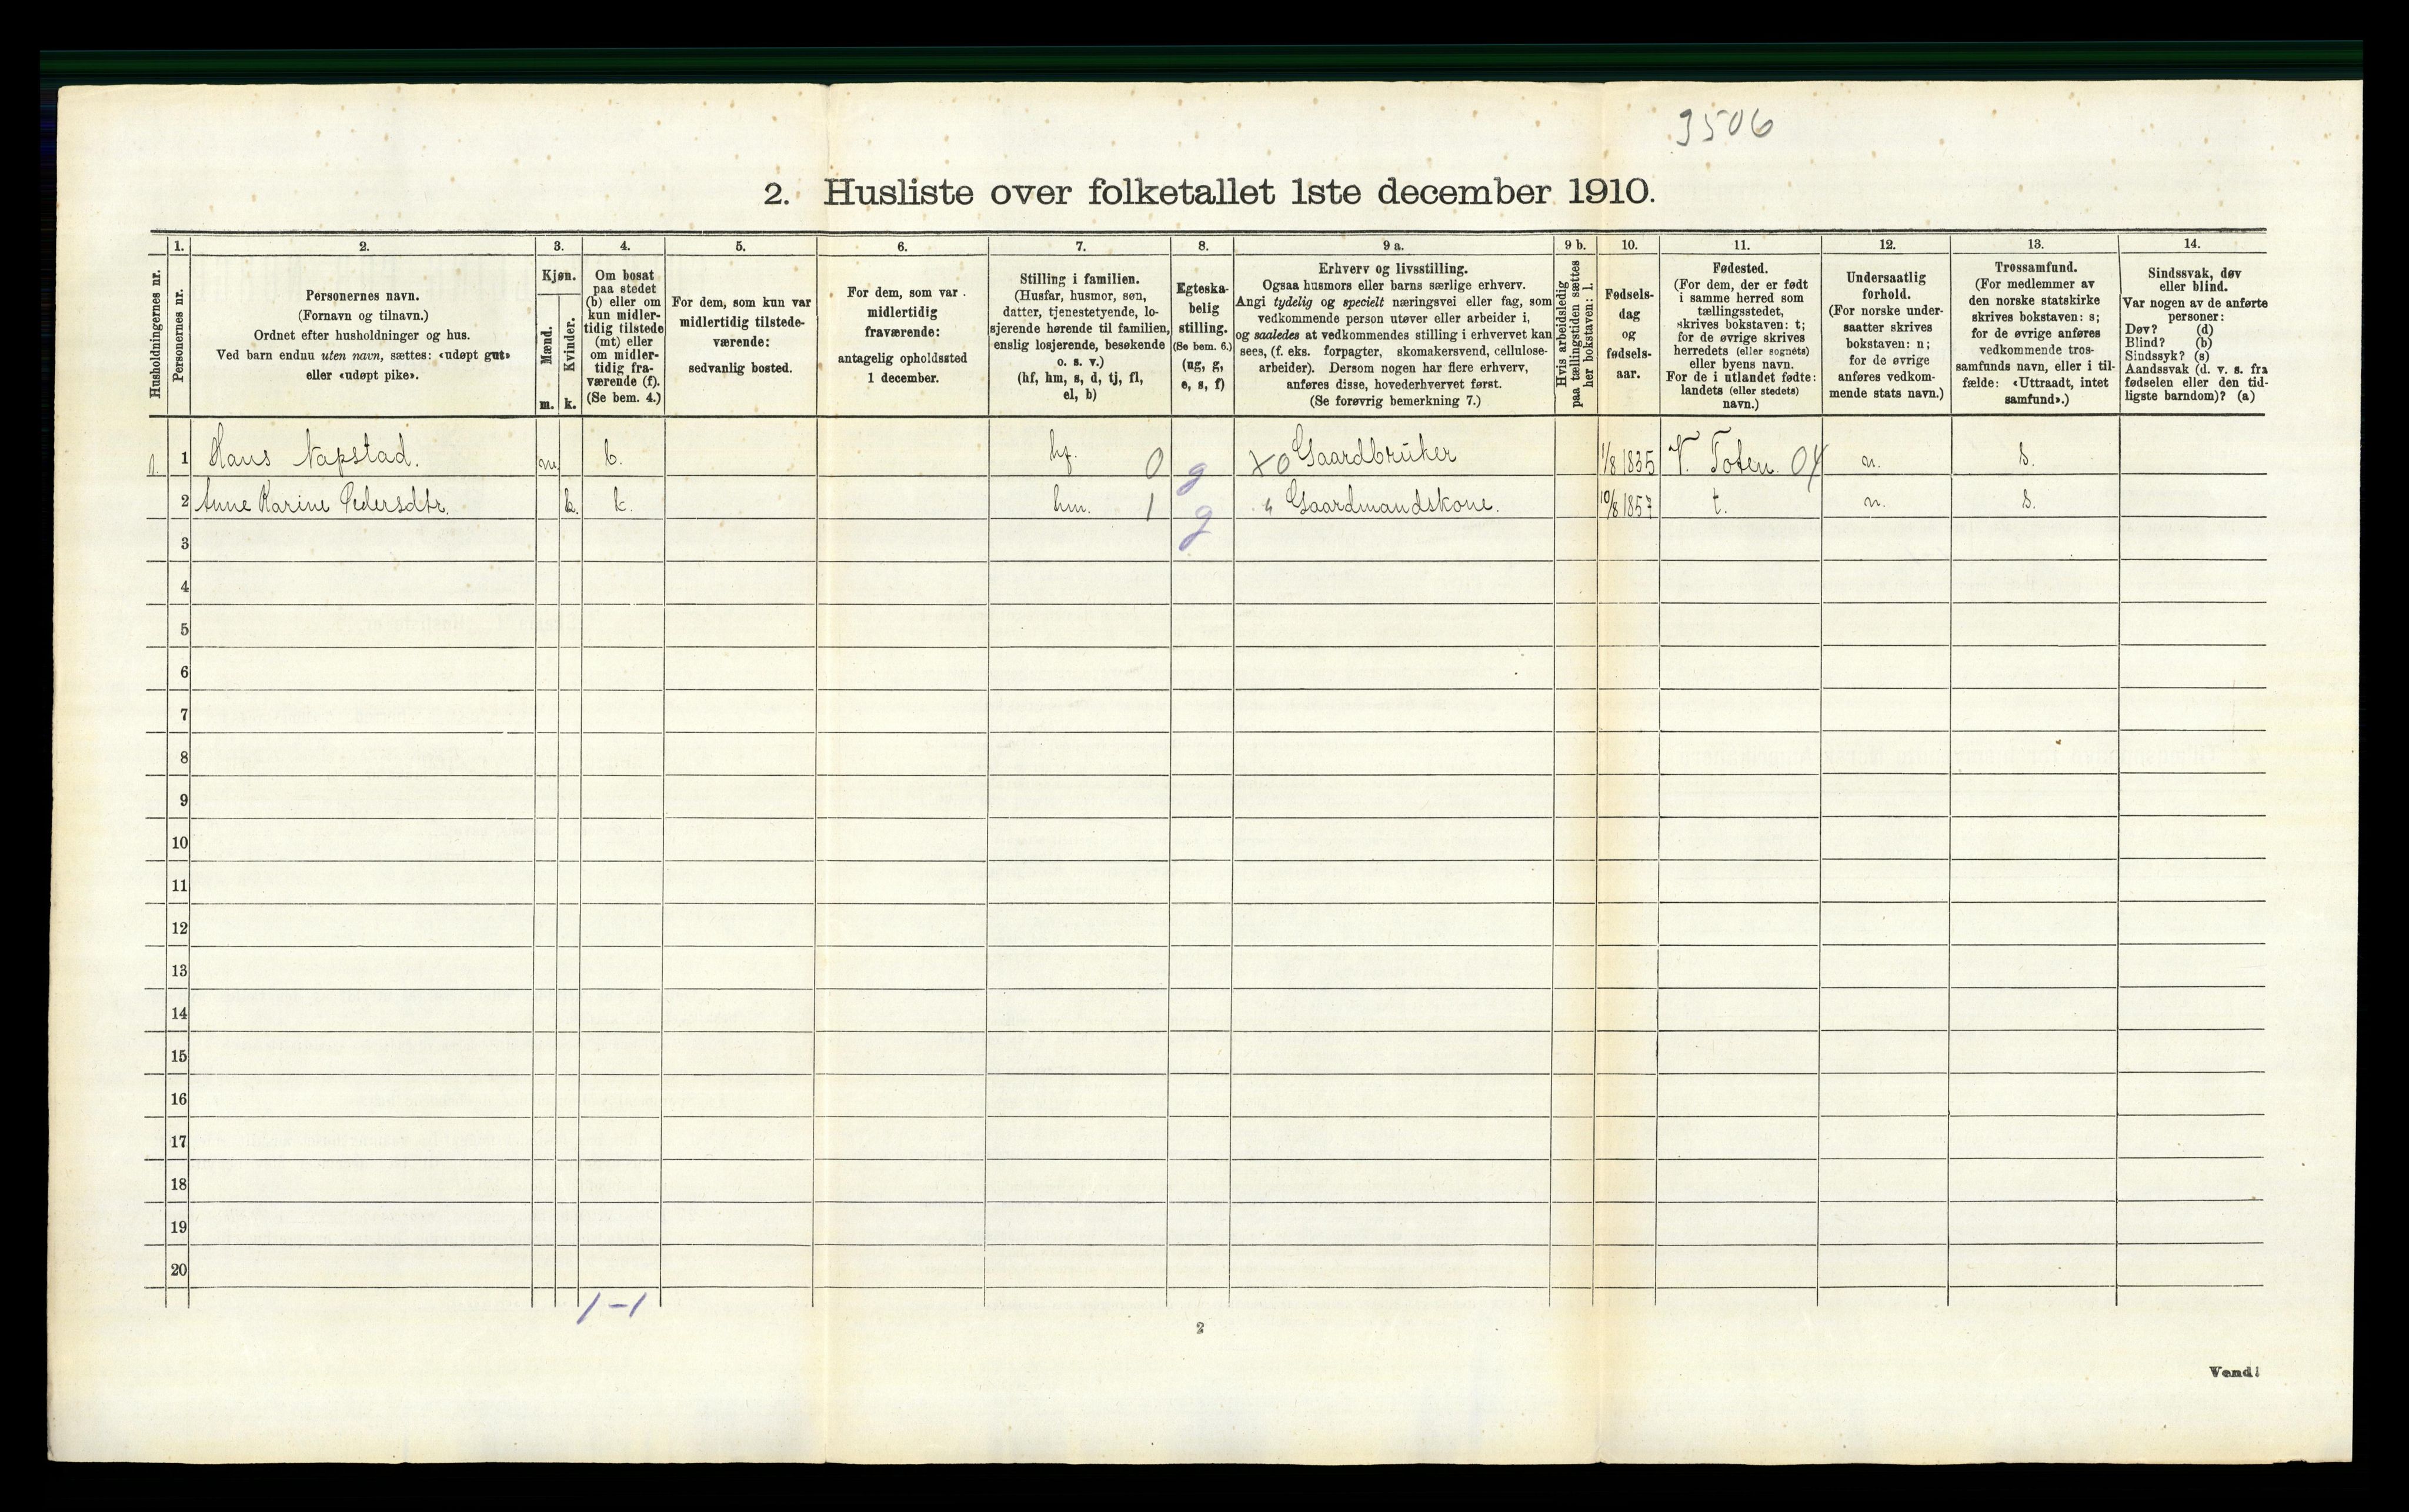 3506
2. Husliste over folketallet 1ste december 1910.
Husholdningernes nr.
1.
Personernes nr.
2.
Personernes navn.
(Fornavn og tilnavn.)
Ordnet efter husholdninger og hus.
Ved barn endnu uten navn, sættes: «udøpt gut»
eller «udøpt pike».
3.
Kjøn.
Mænd.
Kvinder.
m. k.
4.
Om bosat
paa stedet
(b) eller om
kun midler-
tidig tilstede
(mt) eller
om midler-
tidig fra-
værende (f).
(Se bem. 4.)
5.
For dem, som kun var
midlertidig tilstede-
værende:
sedvanlig bosted.
6.
For dem, som var
midlertidig
fraværende:
antagelig opholdssted
1 december.
7.
Stilling i familien.
(Husfar, husmor, søn,
datter, tjenestetyende, lo-
sjerende hørende til familien,
enslig losjerende, besøkende
o. s. v.)
(hf, hm, s, d, tj, fl,
el, b)
8.
Egteska-
belig
stilling.
(Se bem. 6.)
(ug, g,
e, s, f)
9 a.
Erhverv og livsstilling.
Ogsaa husmors eller barns særlige erhverv.
Angi tydelig og specielt næringsvei eller fag, som
vedkommende person utøver eller arbeider i,
og saaledes at vedkommendes stilling i erhvervet kan
sees, (f. eks. forpagter, skomakersvend, cellulose-
arbeider). Dersom nogen har flere erhverv,
anføres disse, hovederhvervet først.
(Se forøvrig bemerkning 7.)
9 b.
Hvis arbeidsledig
paa tællingstiden sættes
her bokstaven: l.
10.
Fødsels-
dag
og
fødsels-
aar.
11.
Fødested.
(For dem, der er født
i samme herred som
tællingsstedet,
skrives bokstaven: t;
for de øvrige skrives
herredets (eller sognets)
eller byens navn.
For de i utlandet fødte:
landets (eller stedets)
navn.)
12.
Undersaatlig
forhold.
(For norske under-
saatter skrives
bokstaven: n;
for de øvrige
anføres vedkom-
mende stats navn.)
13.
Trossamfund.
(For medlemmer av
den norske statskirke
skrives bokstaven: s;
for de øvrige anføres
vedkommende tros-
samfunds navn, eller i til-
fælde: «Uttraadt, intet
samfund».)
14.
Sindssvak, døv
eller blind.
Var nogen av de anførte
personer:
Døv? (d)
Blind? (b)
Sindssyk? (s)
Aandssvak (d. v. s. fra
fødselen eller den tid-
ligste barndom)? (a)
1. 1 Hans Napstad. m b. hf. 0 g X0 Gaardbruker 1/8 1835 V. Toten 04 n. s.
2 Anne Karine Pedersdtr. k. hm. 1 g Gaardmandskone. 10/8 1857 t. n. s.
3
4
5
6
7
8
9
10
11
12
13
14
15
16
17
18
19
20
1-1
2
Vend!